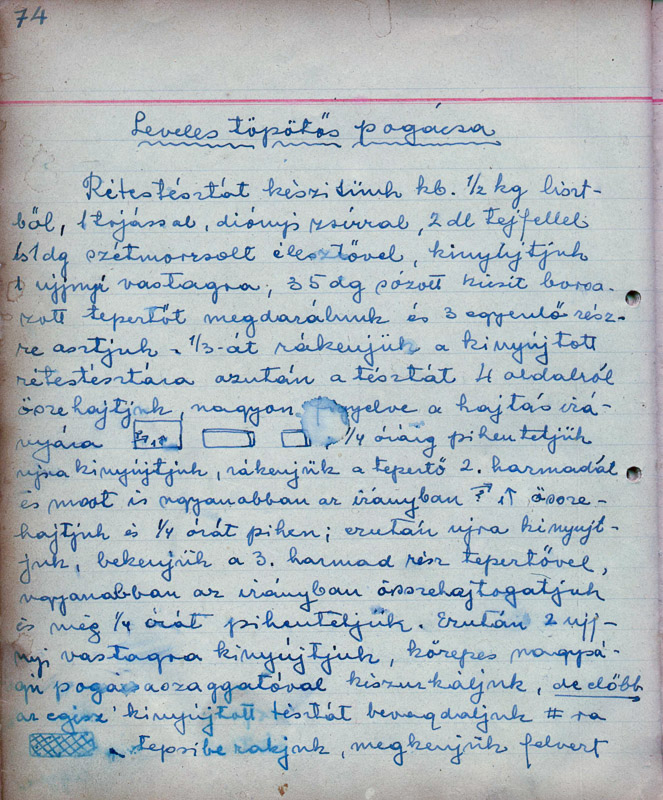 74
Leveles töpötős pogácsa
Rétestésztát készitünk kb. 1/2 kg liszt-
ből, 1 tojással, diónyi zsírral, 2 dl tejfellel
1 dg szétmorzsolt élesztővel, kinyújtjuk
1 ujjnyi vastagra, 35 dg sózott kissit borsa-
zott tepertőt megdarálunk és 3 egyenlő rész-
re osztjuk - 1/3-át rákenjük a kinyújtott
rétestésztára azután a tésztát 4 oldalról
össze hajtjuk, nagyon a hajtás irá-
nyára , 1/4 óráig pihentetjük
ujra kinyújtjuk, rákenjük a tepertő 2. harmadát
és most is ugyanabban az irányban össze-
hajtjuk és 1/4 órát pihen; ezután ujra kinyujt-
juk, bekenjük a 3. harmad rész tepertővel,
ugyanabban az irányban összehajtogatjuk
és még 1/4 órát pihentetjük. Ezután 2 ujj-
nyi vastagra kinyújtjuk, közepes nagysá-
gu pogácsaszaggatóval kiszurkáljuk, de előbb
az egész kinyújtott tésztát bevagdaljuk # ra
tepsibe rakjuk, megkenjük felvert